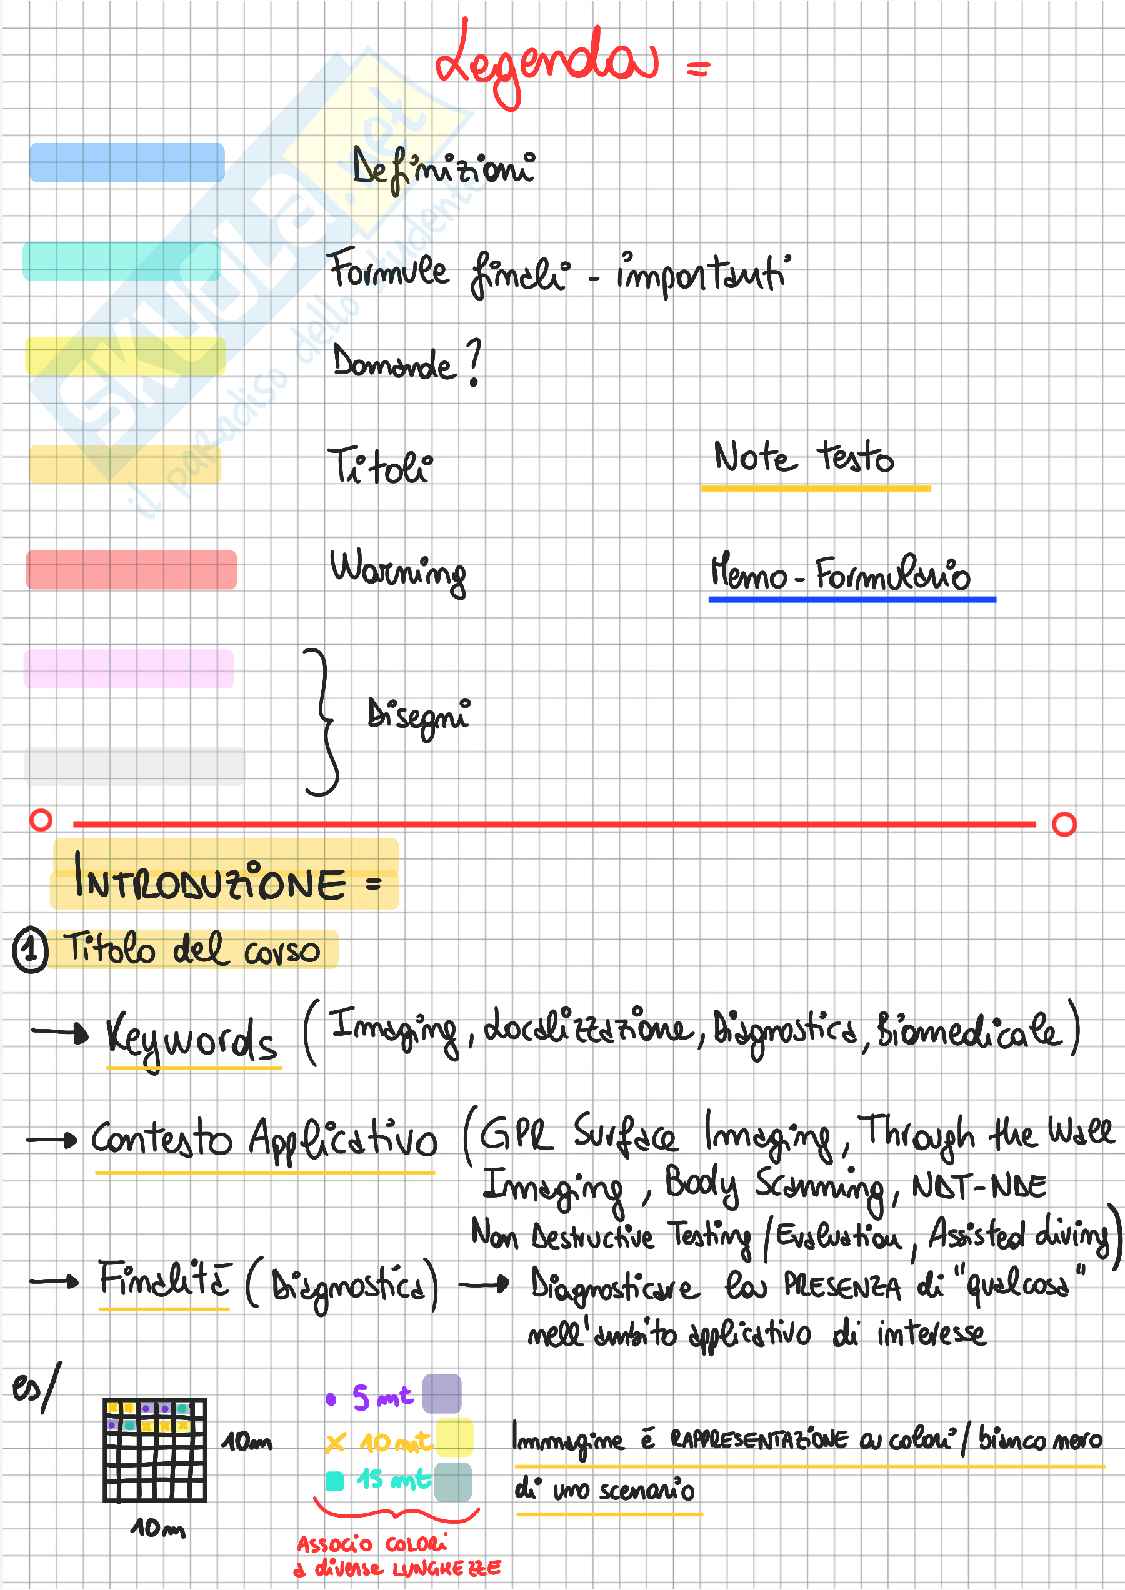 Legenda =
Definizioni
Formule finali - importanti
Domande?
Titoli
Note testo
Warning
Memo - Formulario
Disegni
INTRODUZIONE =
1 Titolo del corso
→ Keywords (Imaging, Localizzazione, Diagnostica, Biomedicale)
→ Contesto Applicativo (GPR Surface Imaging, Through the Wall
Imaging, Body Scanning, NDT-NDE
Non Destructive Testing/Evaluation, Assisted diving)
→ Finalità (Diagnostica) → Diagnosticare la PRESENZA di "qualcosa"
nell'ambito applicativo di interesse
es/
10m
10m
• 5 mt
× 10 mt
■ 15 mt
ASSOCIO COLORI
a diverse LUNGHEZZE
Immagine è RAPPRESENTAZIONE a colori/bianco nero
di uno scenario
SKUOLA.net
il paradiso dello studente